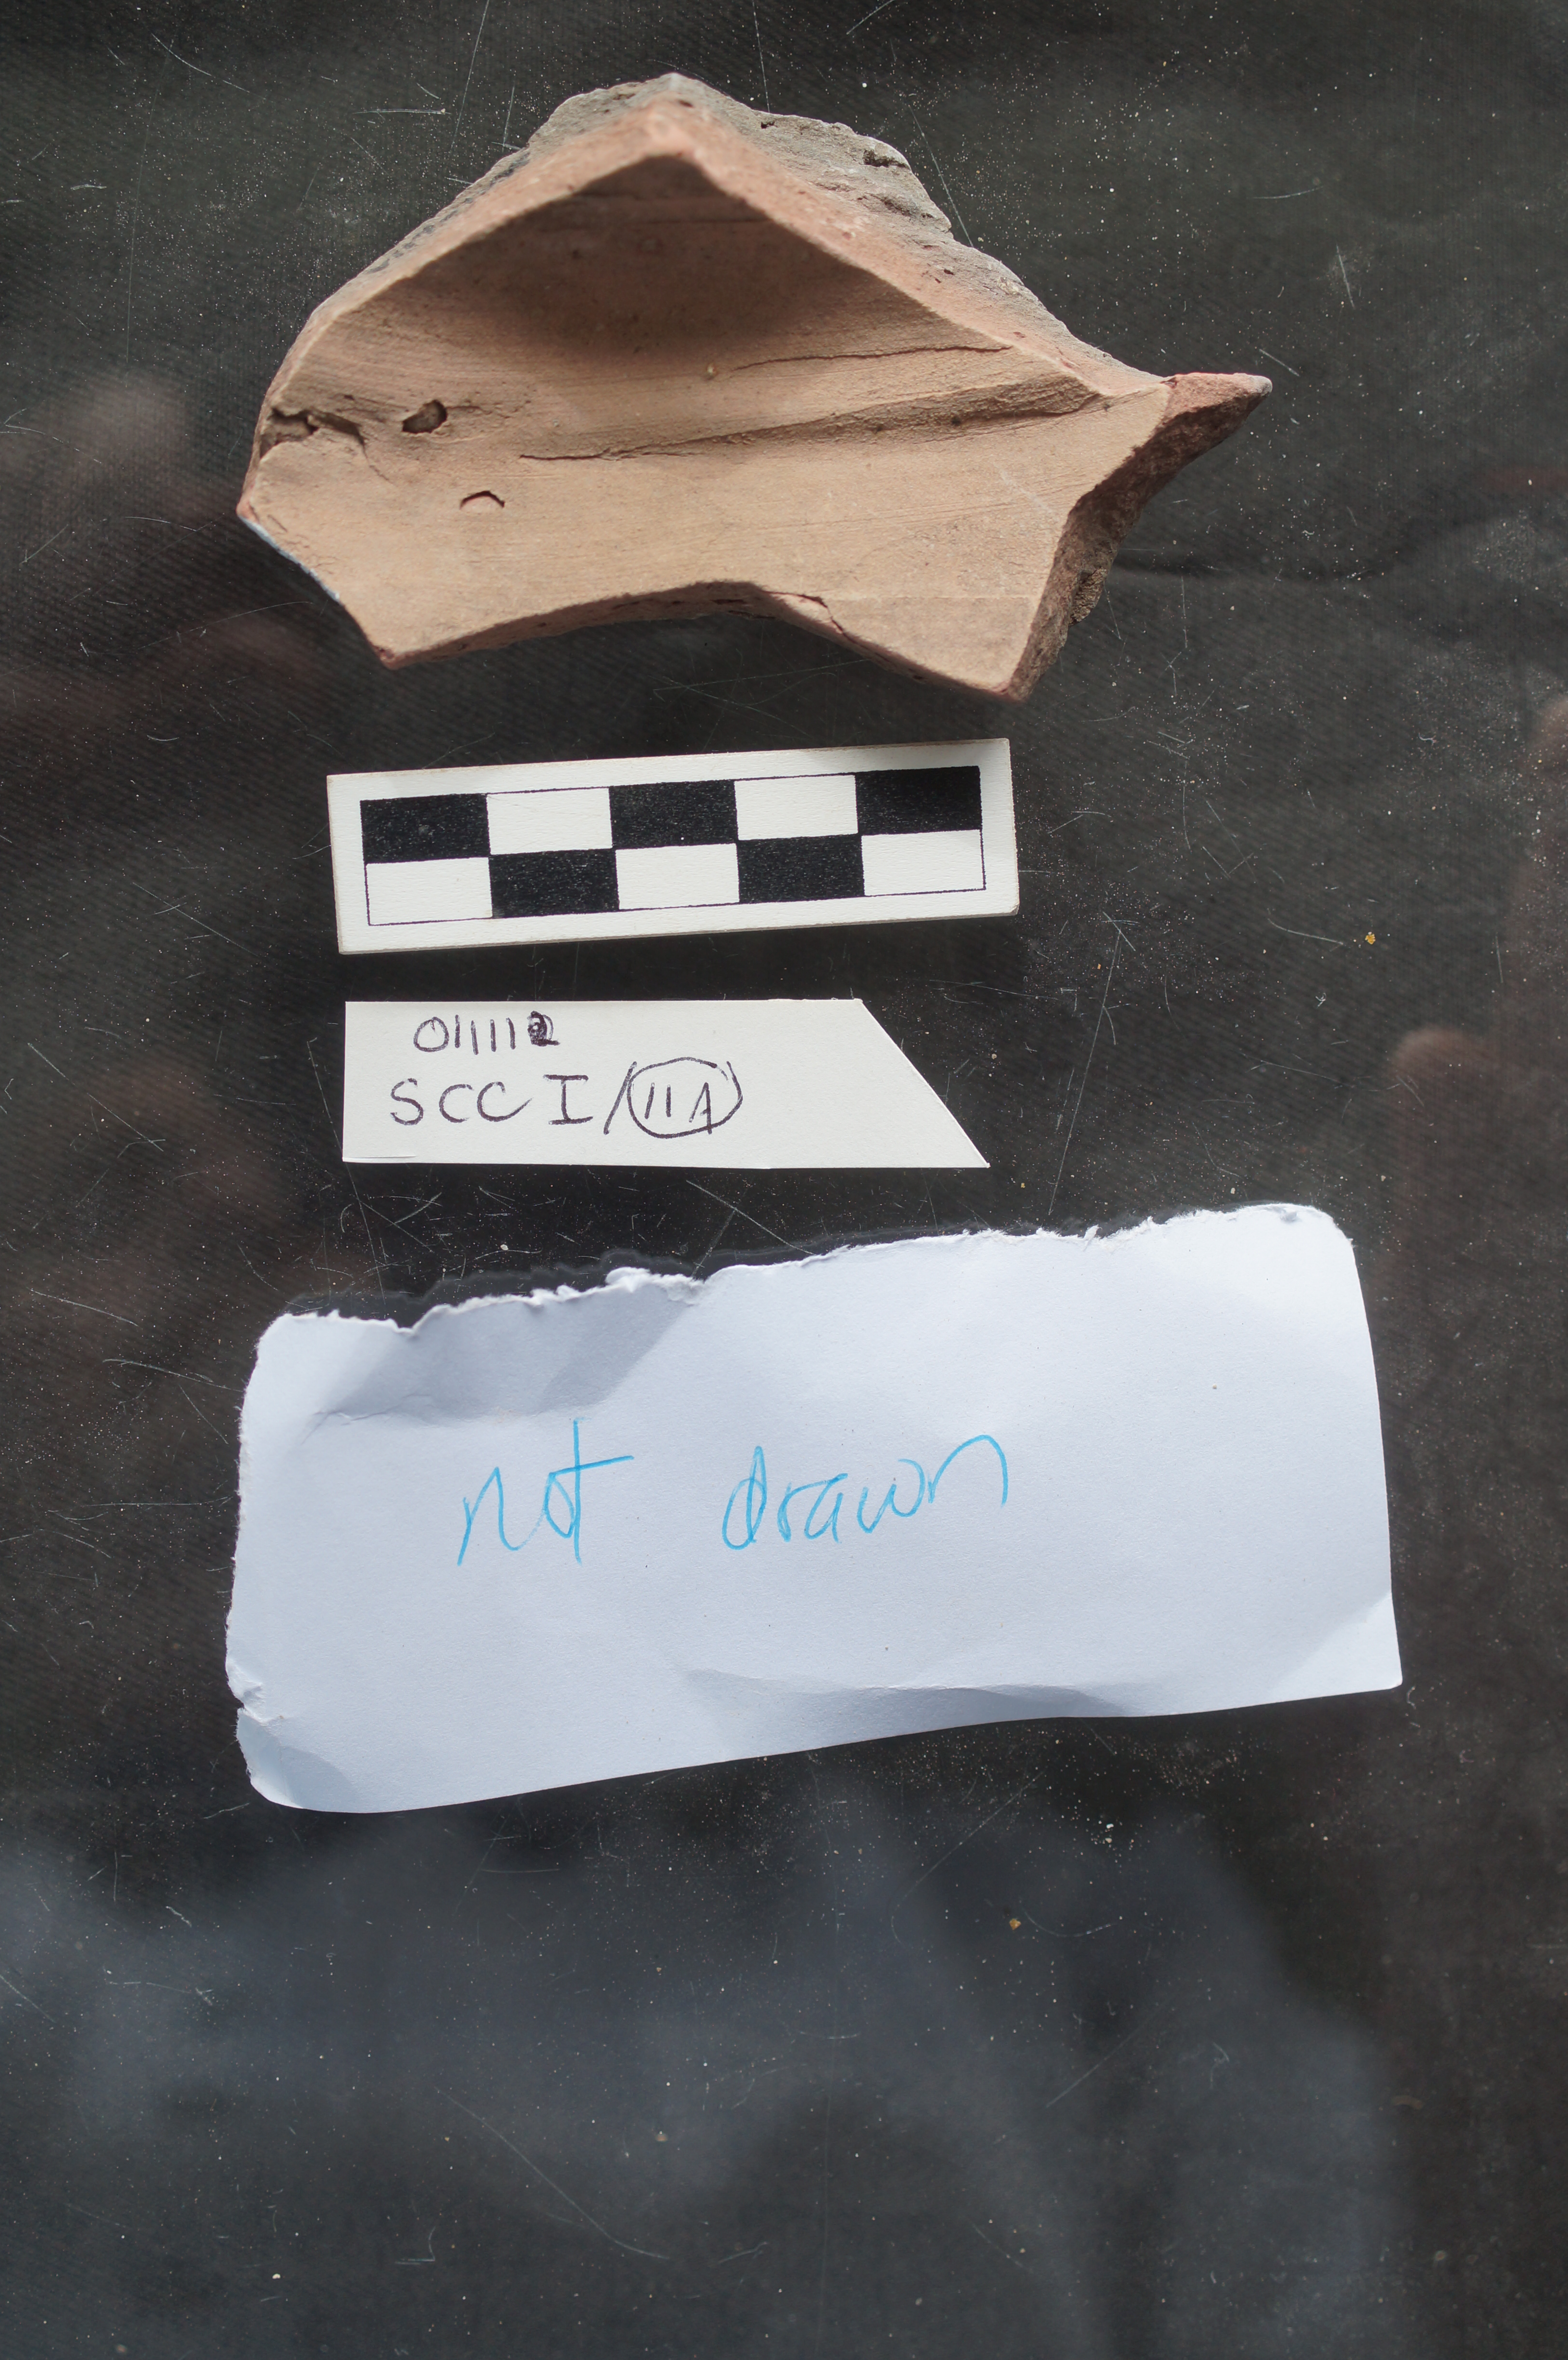 011112
SCC I/11A
not drawn